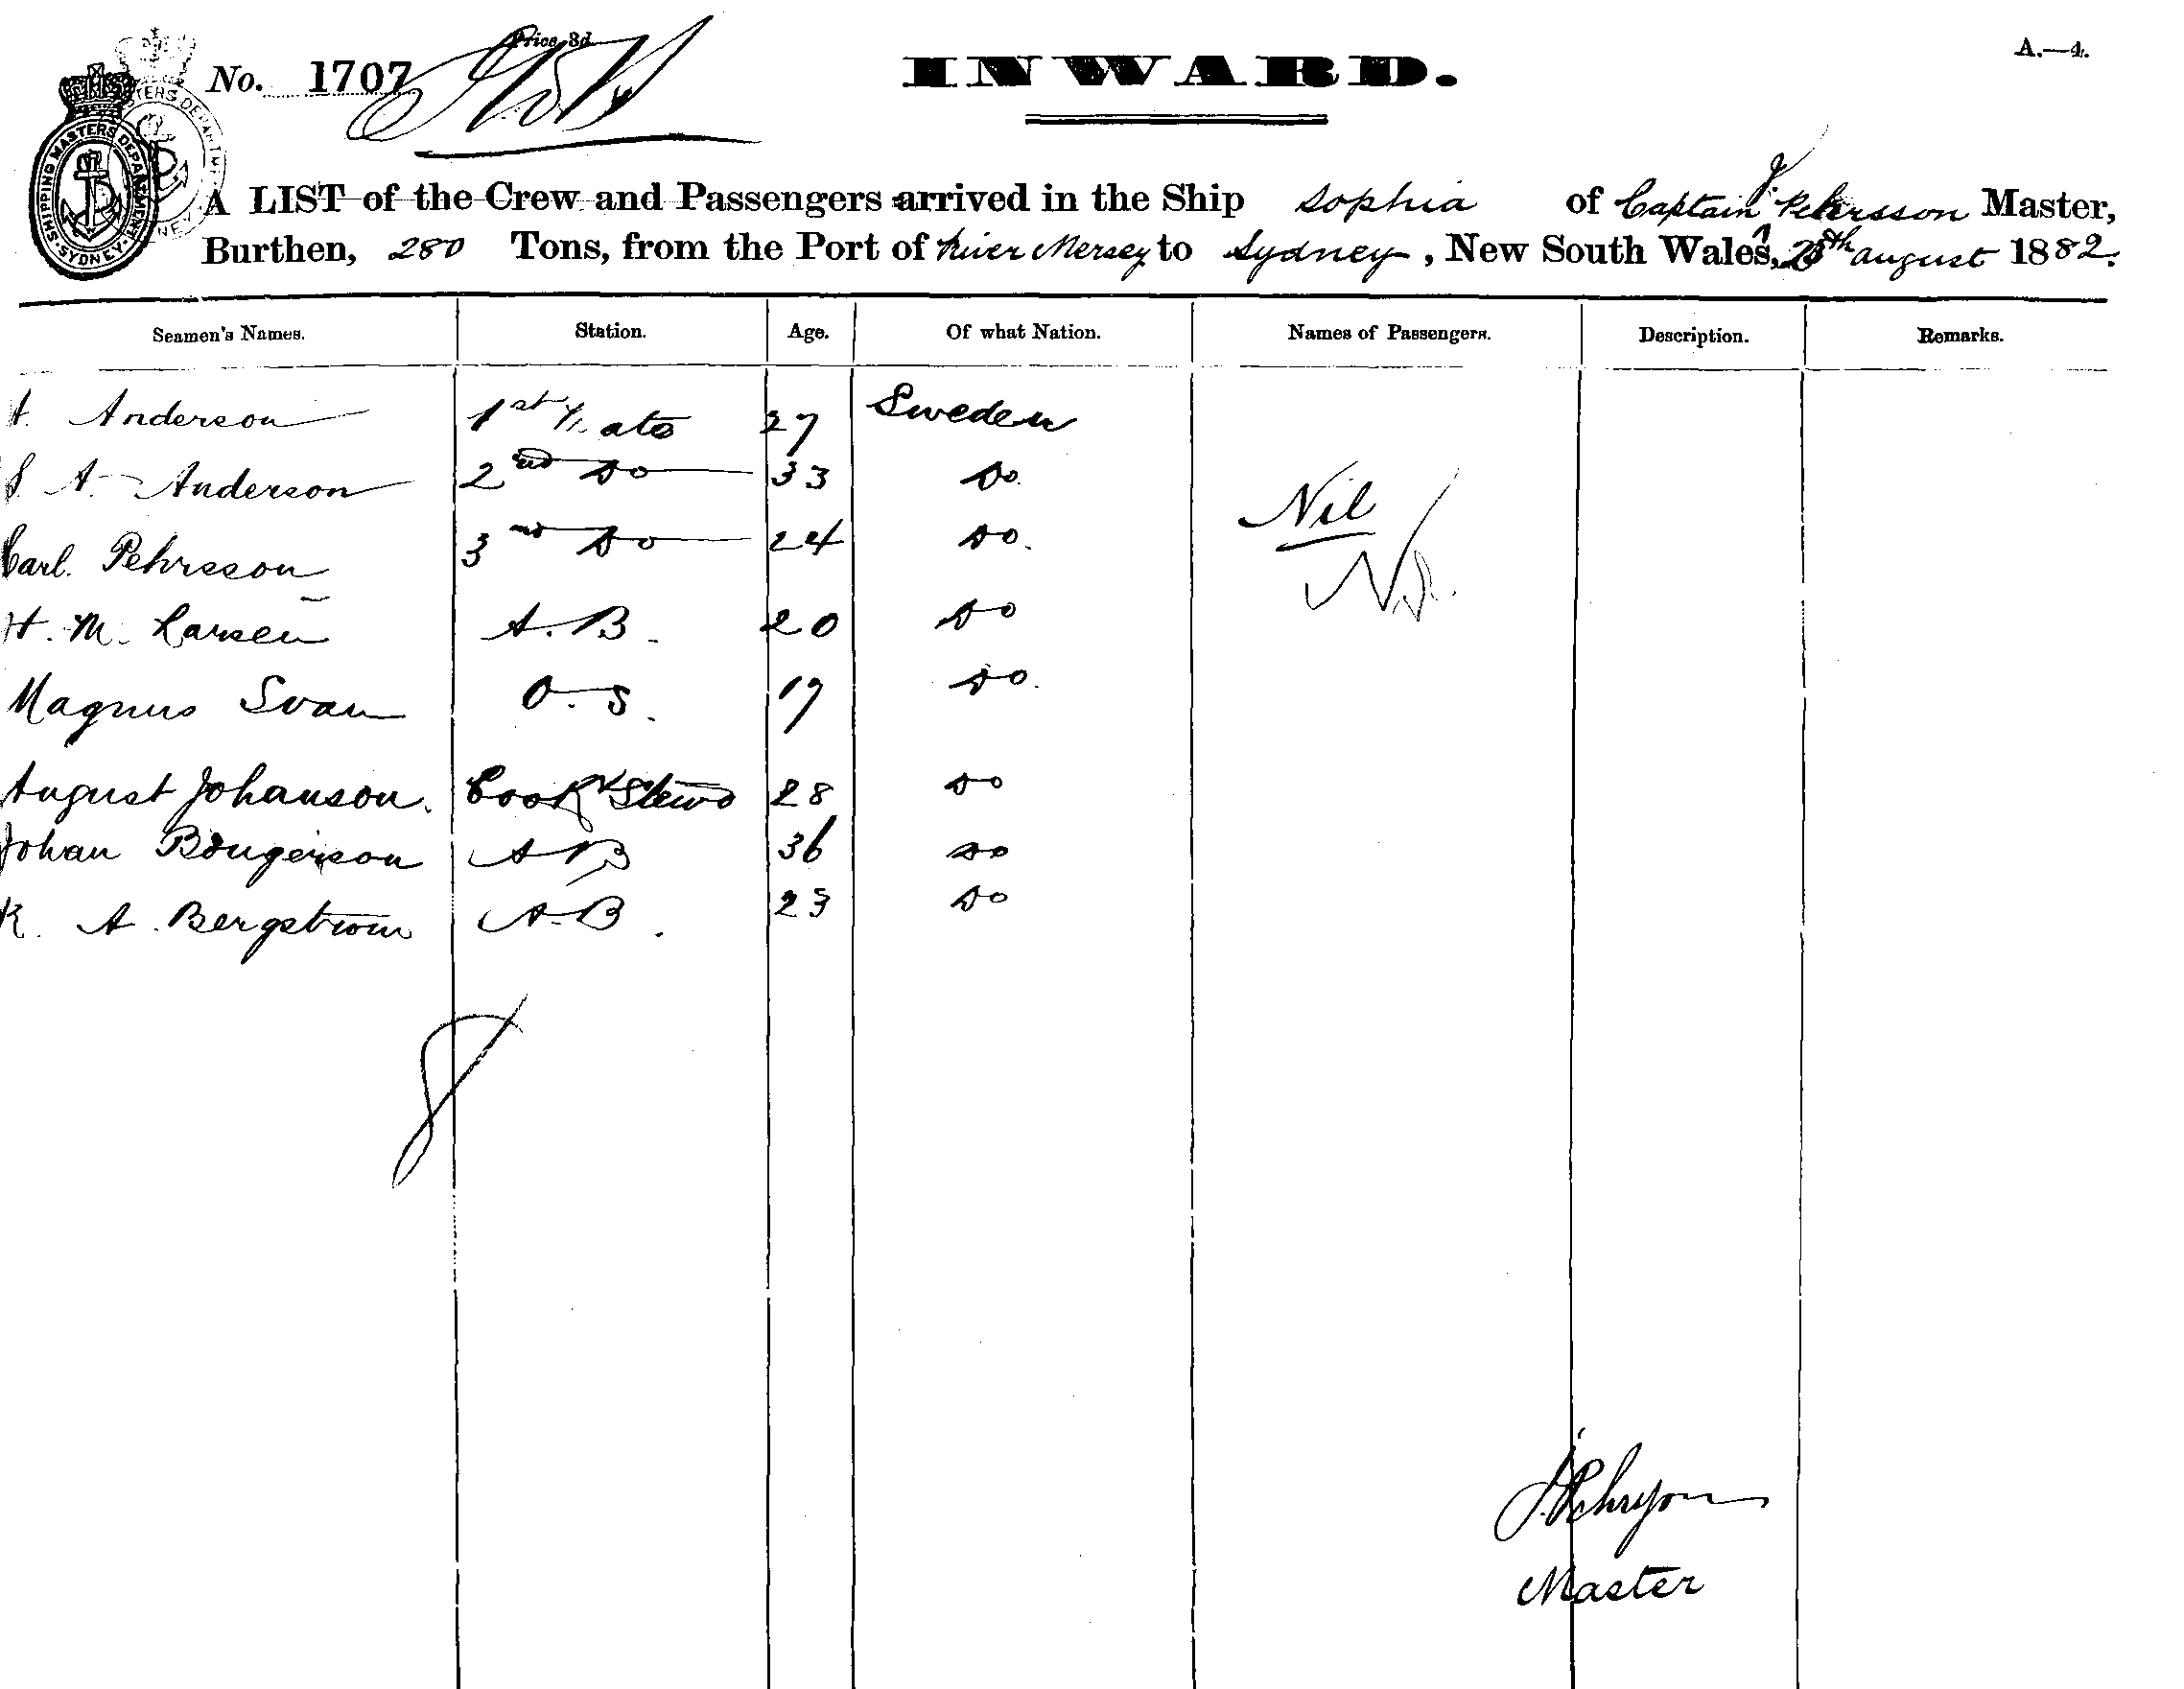 Price 3d.
No. 1707
INWARD.
A.—4.
SHIPPING MASTERS DEPARTMENT SYDNEY
A LIST of the Crew and Passengers arrived in the Ship Sophia of Captain J. Pehrsson Master,
Burthen, 280 Tons, from the Port of River Mersey to Sydney, New South Wales, august 1882.
Seamen's Names. Station. Age. Of what Nation. Names of Passengers. Description. Remarks.
A. Anderson 1st Mate 27 Sweden
S. A. Anderson 2nd Do 33 Do
Nil
Carl. Pehrsson 3rd Do 24 Do.
H. M. Larsen A.B. 20 Do
Magnus Svan O.S. 19 Do.
August Johanson. Cook & Stewd 28 Do
Johan AB 36 Do
K. A. Bergstrom A.B. 23 Do
8
J. Pehrsson
Master